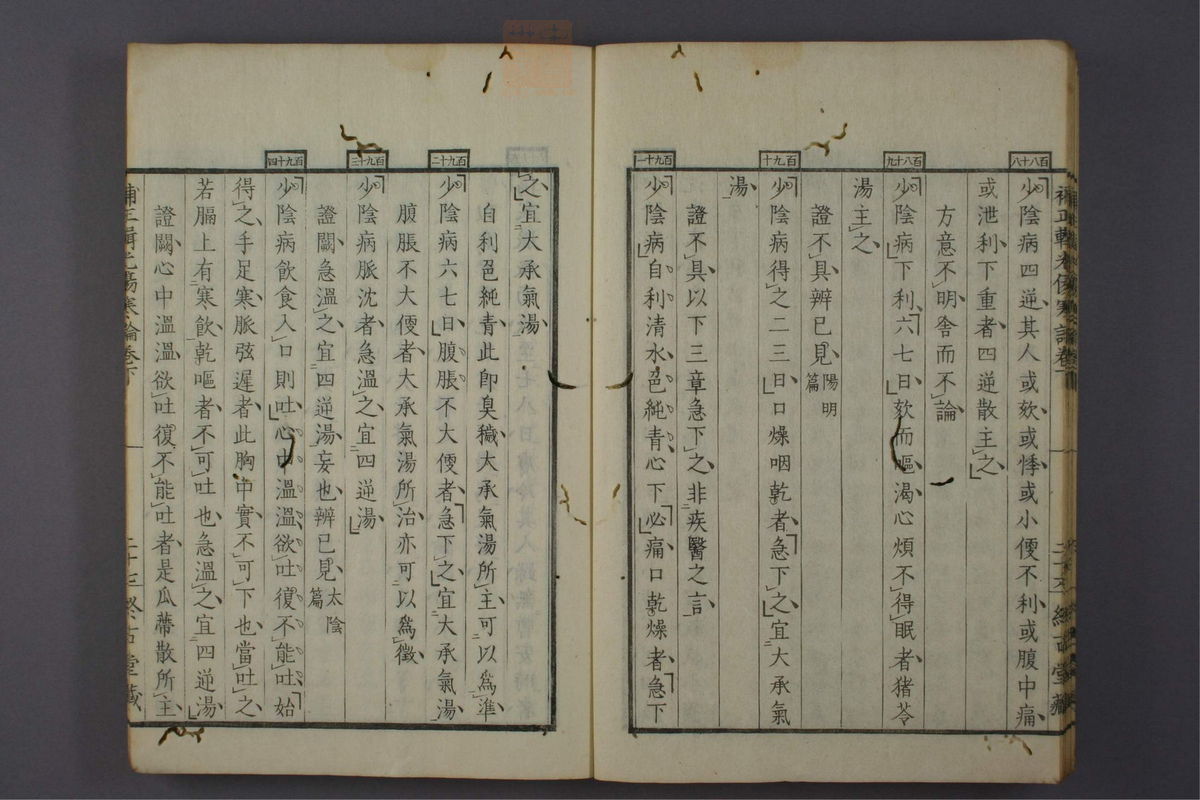 百八十八
少陰病四逆其人或欬或悸或小便不利或腹中痛
或泄利下重者四逆散主之
方意不明舍而不論
百八十九
少陰病下利六七日欬而嘔渴心煩不得眠者猪苓
湯主之
證不具辨已見陽明篇
百九十
少陰病得之二三日口燥咽乾者急下之宜大承氣
湯
證不具以下三章急下之非疾醫之言
百九十一
少陰病自利清水色純青心下必痛口乾燥者急下
之宜大承氣湯
自利色純青此即臭穢大承氣湯所主可以爲準
百九十二
少陰病六七日腹脹不大便者急下之宜大承氣湯
腹脹不大便者大承氣湯所治亦可以爲徵
百九十三
少陰病脈沈者急溫之宜四逆湯
證闕急溫之宜四逆湯妄也辨已見太陰篇
百九十四
少陰病飲食入口則吐心中溫溫欲吐復不能吐始
得之手足寒脈弦遲者此胸中實不可下也當吐之
若膈上有寒飲乾嘔者不可吐也急溫之宜四逆湯
證闕心中溫溫欲吐復不能吐者是瓜蔕散所主